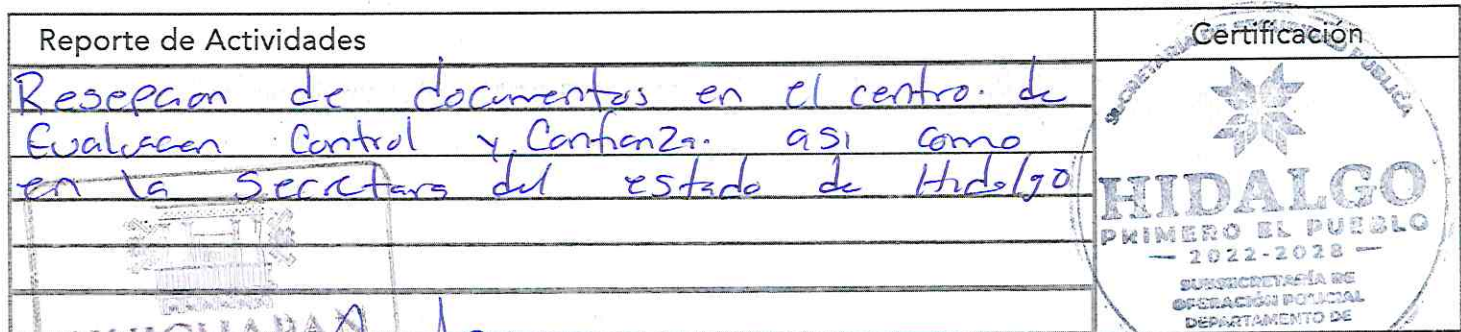 Reporte de Actividades
Certificación
Resepcion de documentos en el centro. de
Evaluacen Control y Confianza. asi como
en la Secretara del estado de Hidalgo
SECRETARÍA DE SEGURIDAD PÚBLICA
HIDALGO
PRIMERO EL PUEBLO
2022-2028
SUBSECRETARÍA DE
OPERACIÓN POLICIAL
DEPARTAMENTO DE